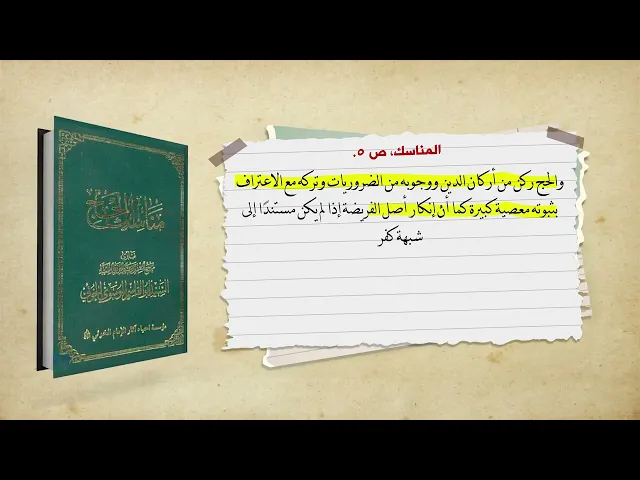 المناسك، ص ٥.
والحج ركن من أركان الدين ووجوبه من الضروريات وتركه مع الاعتراف
بثبوته معصية كبيرة كما أن إنكار أصل الفريضة إذا لم يكن مستندًا إلى
شبهة كفر
مناسك الحج
مؤسسة إحياء آثار الإمام الخوئي